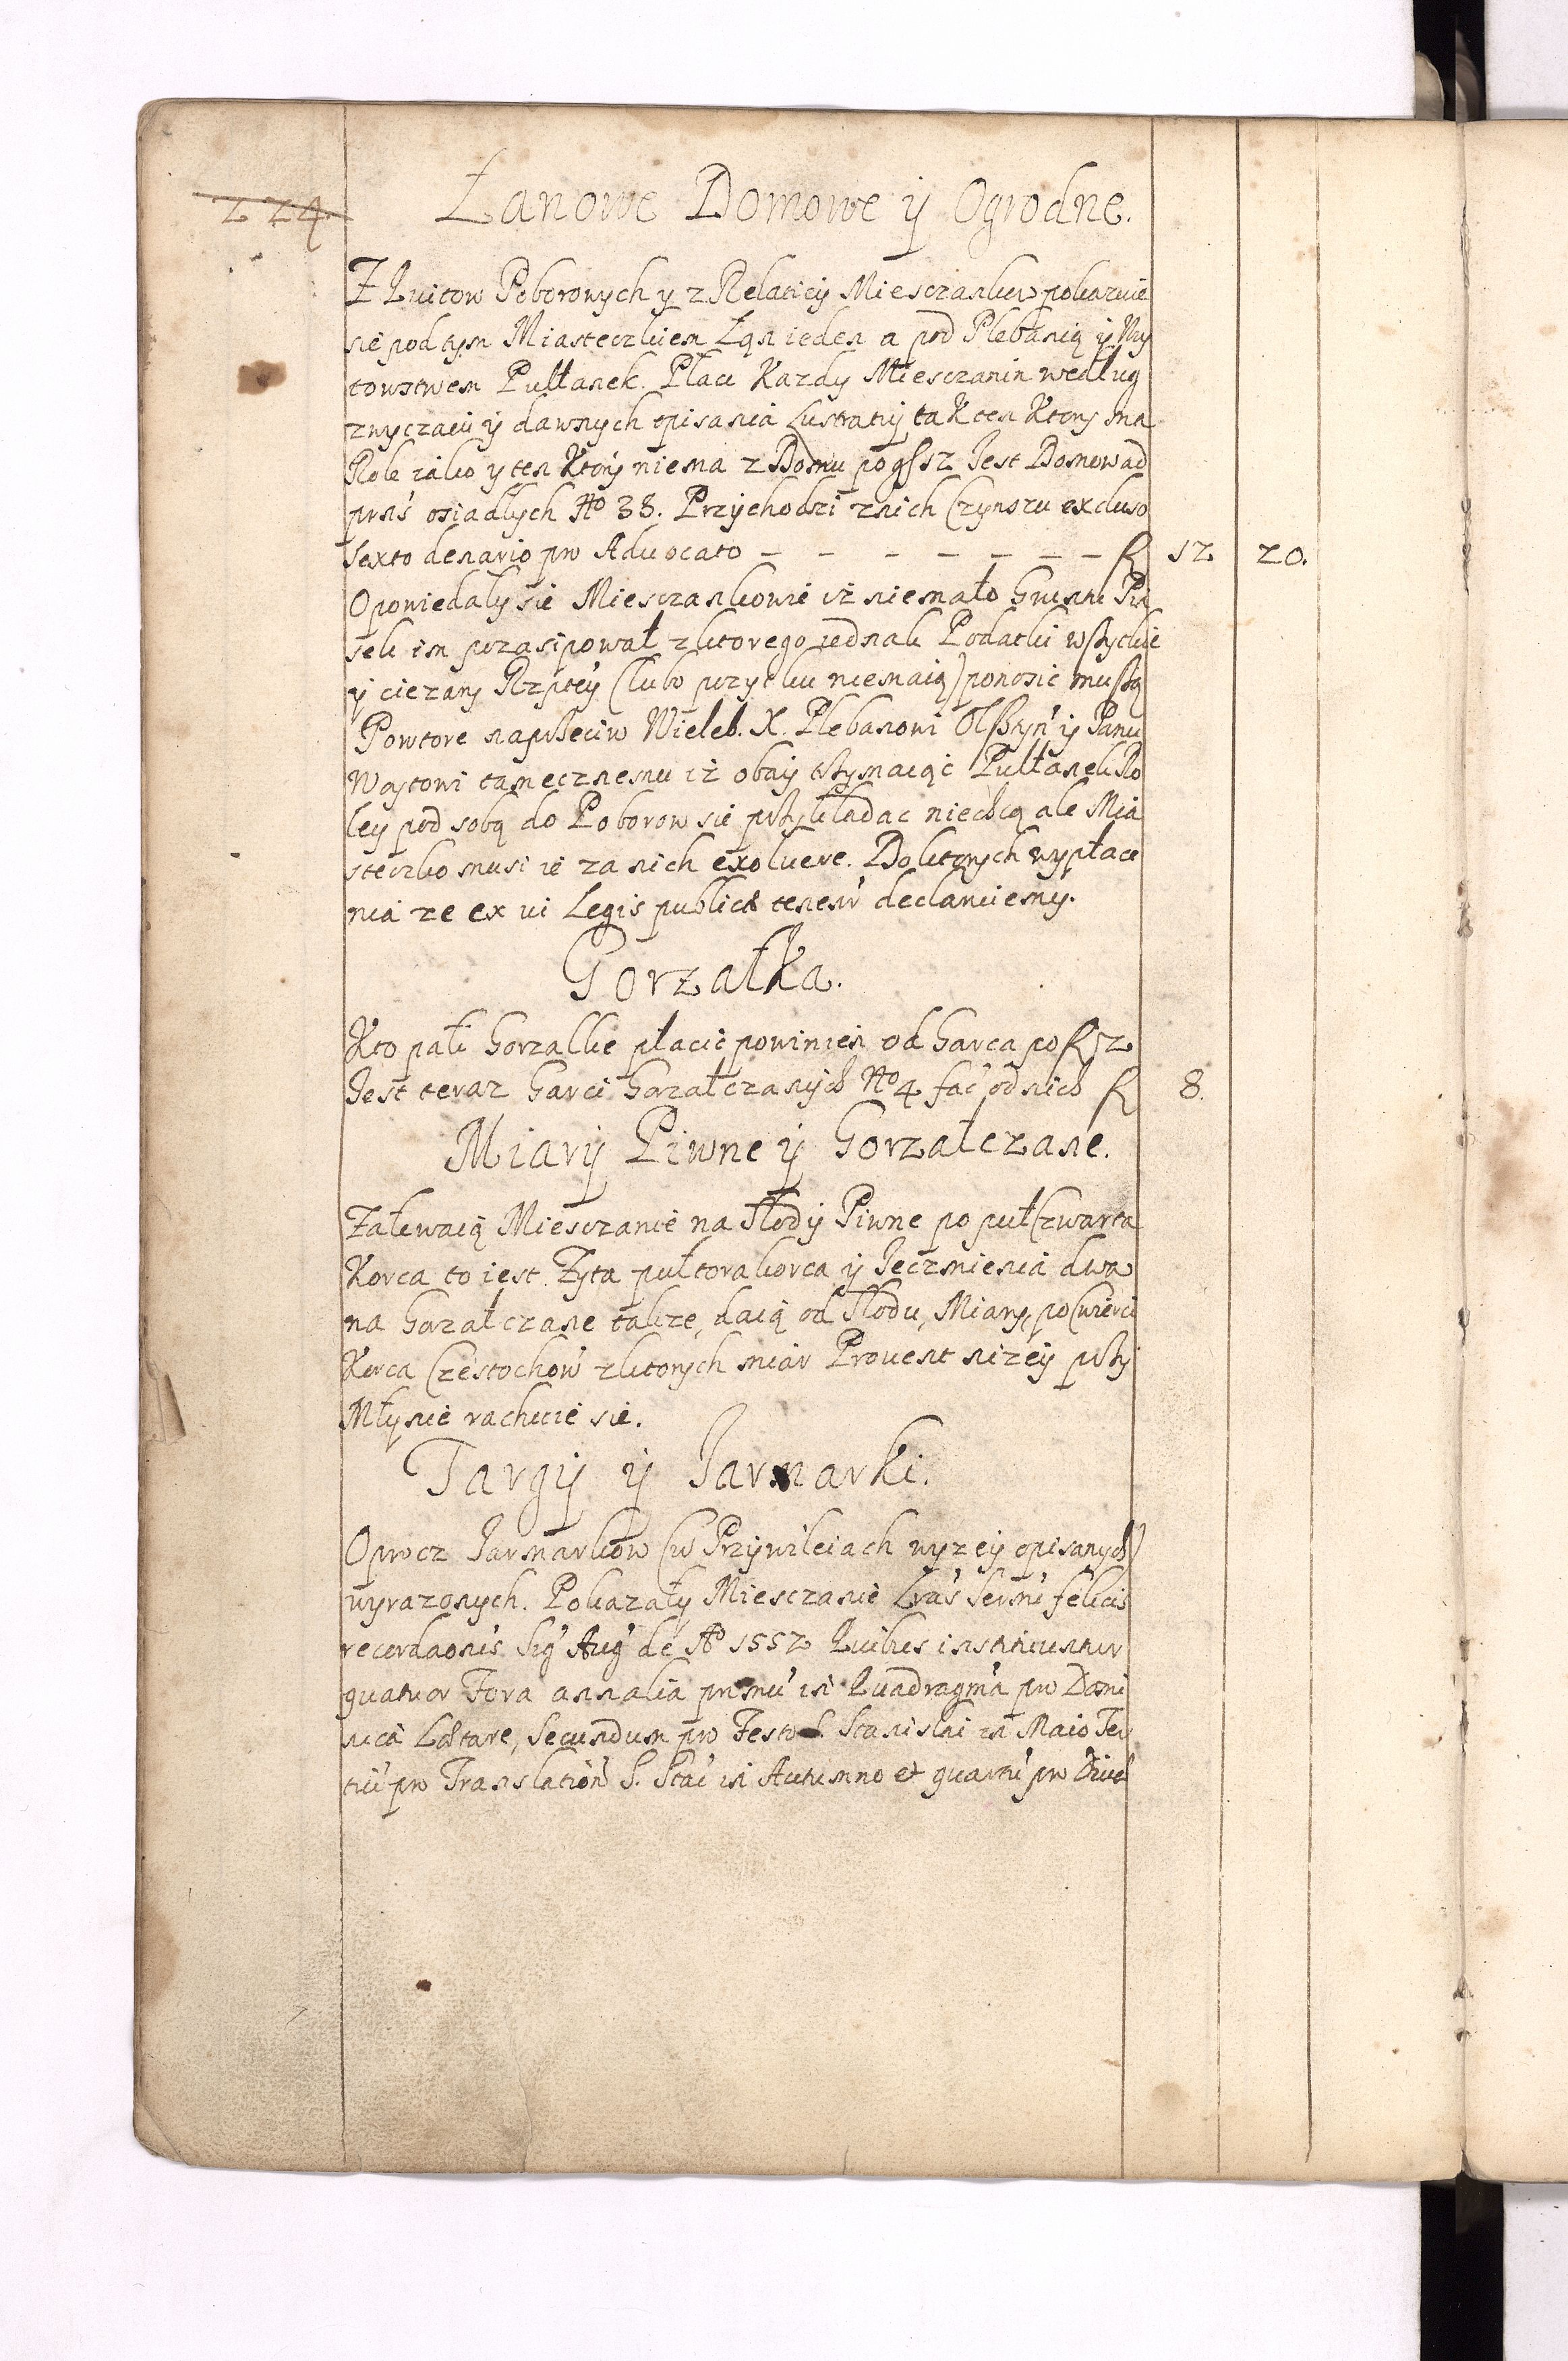 224
Łanowe Domowe ÿ Ogrodne.
Z Kuitow Poborowych y z Relaticij Miesczankow pokazuie
sie pod tym Miasteczkiem Łąn ieden a pod Plebanią ÿ Wÿ
towstwem Pułłanek. Płaci Kazdy Miesczanin według
zwyczaiu ÿ dawnych opisania Lustratij tak ten Ktory ma
Role iako y ten Ktorÿ niema z Domu po gr 12 Jest Domow ad
pns osiadłych No 38. Przychodzi znich Czynszu excluso
sexto denario pro Advocato — — — — — — — fl 12 20.
Opowiedaly sie Miesczankowie iż niemało Gruntu Pia
sek im przasipował z ktorego iednak Podatki wszytkie
ÿ ciezary Rzptey (lubo pozytku niemaią) ponosic muszą
Powtore naprzeciw Wieleb. X. Plebanowi Olsztyn ÿ Panu
Woytowi tamecznemu iż obaÿ trzymaiąc Pułłanek Ro
ley pod sobą do Poborow sie przykładac niechcą ale Mia
steczko musi ie za nich exoluere. Do ktorych wypłace
nia ze ex ui Legis publicæ tenentr declaruiemy.
Gorzałka.
Kto pali Gorzałke płacić powinien od Garca po fl 2
Jest teraz Garci Gorzałczanych No 4 fac od nich fl 8.
Miarÿ Piwne ÿ Gorzałczane.
Zalewaią Miesczanie na Słody Piwne po puł Czwarta
Korca to iest. Zyta pułtora korca ÿ Jeczmienia dwa
na Gorzałczane takze, daią od Słodu, Miary, po Cwierci
Korca Czestochow z ktorych miar Prouent nizeÿ przy
Młynie rachuie sie.
Targÿ ÿ Jarmarki.
Oprocz Jarmarkow (w Przywileiach wyzeÿ opisanych)
wyrazonych. Pokazały Miesczanie Lras Sermi felicis
recordaonis Sig Aug de Ao 1552 Quibus instituuntur
quatuor Fora annalia primu in Quadragma pro Domi
nica Lætare, Secundum pro Festo S. Stanislai in Maio Ter
tiu pro Translation S. Stai in Autumno et quartu pro Diue